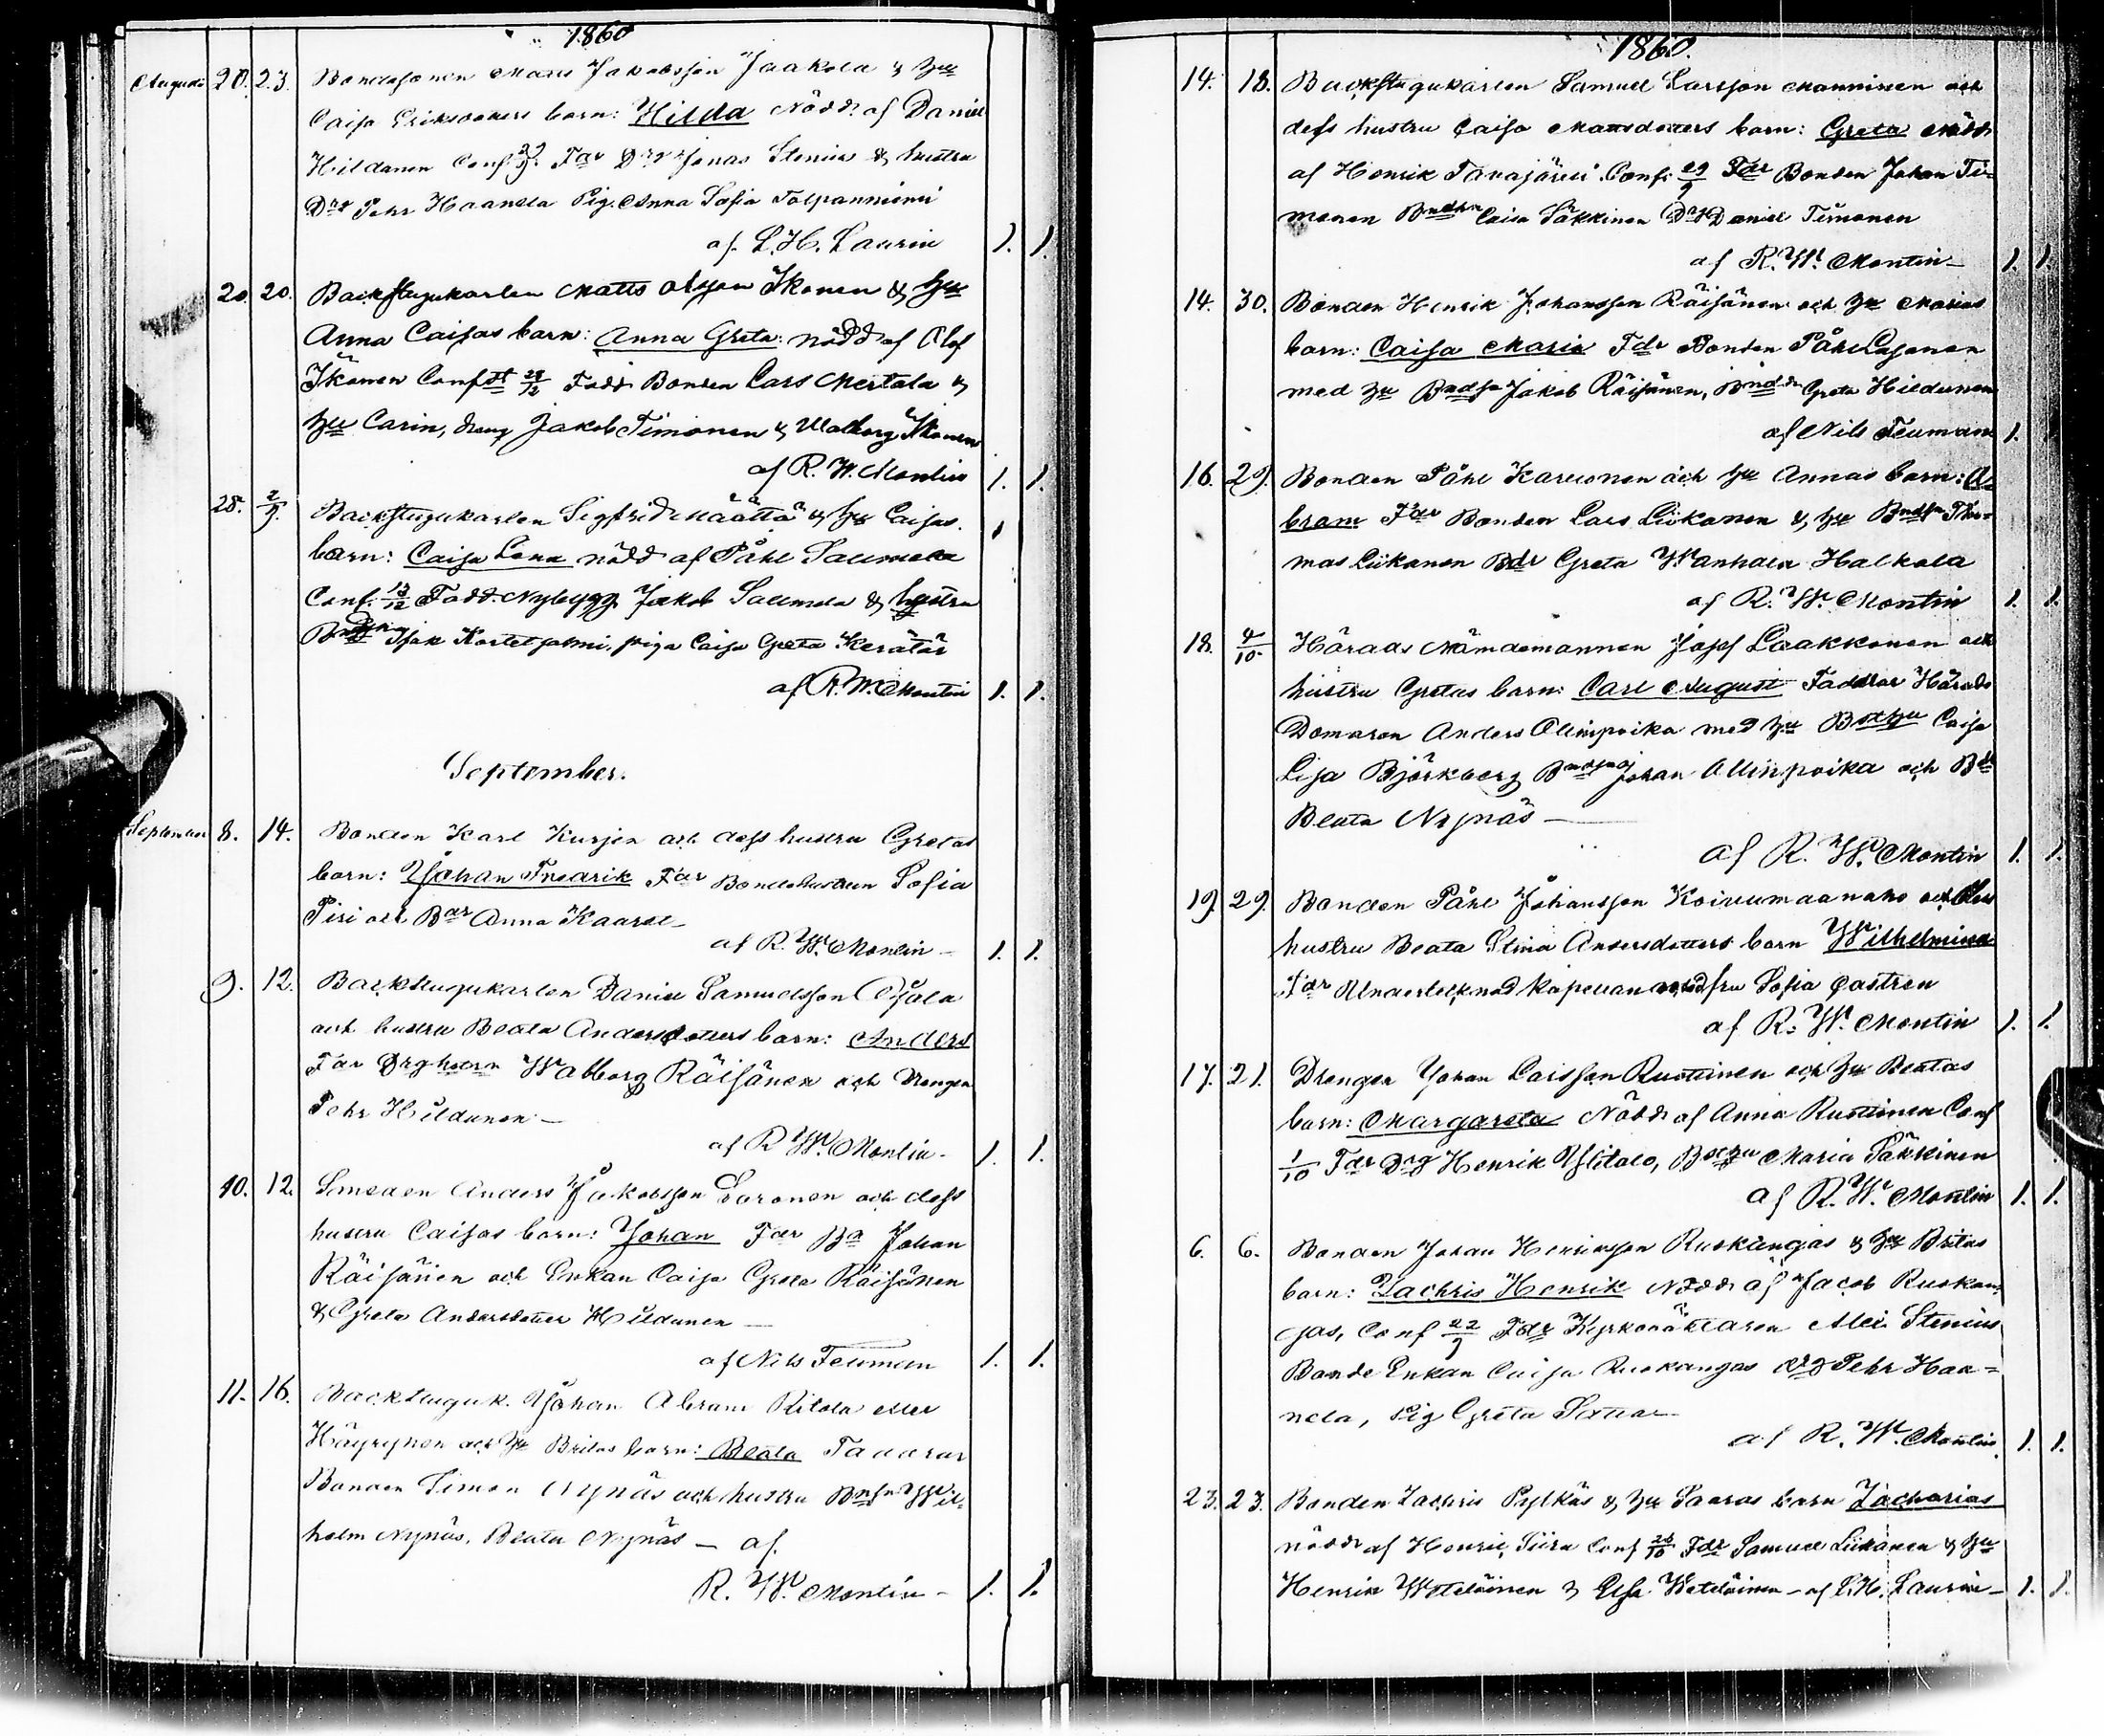 1860
Augusti 20. 23. Bondesonen Matts Jakobsson Jaakola & hu
Caisa Eriksdotters barn: Hilda Nödd. af Daniel
Hildanen Conf. 29/9. Far Drg Jonas Stenius & hustru
Drg Pehr Haanela Pig. Anna Sofia Talpanniemi
af L. H. Laurin 1. 1.
20. 20. Backstugukarlen Matts Olsson Ikonen & hu
Anna Caisas barn: Anna Greta: nödd af Olof
Ikonen Conf st 28/12 Fadd. Bonden Lars Mertala &
hu Carin, dreng Jakob Timonen & Walborg Ikonen
af R. W. Montin 1. 1.
28. 2/9. Backstugukarlen Sigfrid Määttä & hu Caisas
barn: Caisa Lena nödd af Påhl Saumela
Conf. 13/12 Fadd. Nybygg. Jakob Saumela & hustru
Isak Kortetjalmi, piga Caisa Greta Kerätär
af R. W. Montin 1. 1.
September.
September 8. 14. Bonden Karl Kurjen och dess hustru Gretas
barn: Johan Fredrik Far Bondehustrun Sofia
Piri och Bdr Anna Kaarel
af R. W. Montin 1. 1.
9. 12. Backstugukarlen Daniel Samuelsson Ojala
och hustru Beata Andersdotters barn: Anders
Far Drghustrn Walborg Räisänen och Drengen
Pehr Hildunen
af R. W. Montin. 1. 1.
10. 12. Smeden Anders Jakobsson Soronen och dess
hustru Caisas barn: Johan Far Bo Johan
Räisänen och Enkan Caisa Greta Räisänen
& Greta Andersdotter Hildunen
af Nils Teuman 1. 1.
11. 16. Backstuguk. Johan Abram Ritola eller
Häyrynen och hu Britas barn: Beata Faddrar
Bonden Simon Nynäs och hustru Bnsn Wil-
helm Nynäs, Beata Nynäs — af
R. W. Montin 1. 1.
1860.
14. 18. Backstugukarlen Samuel Larsson Manninen och
dess hustru Caisa Mattsdotters barn: Greta Nödd
af Henrik Tavajärvi Conf: 29/9 Fdr Bonden Johan Ti-
monen Caisa Säkkinen Drg Daniel Timonen
af R. W. Montin 1. 1.
14. 30. Bonden Henrik Johansson Räisänen och hu Marias
barn: Caisa Maria Fdr Bonden Påhl Lasonen
med hu Bndsn Jakob Räisänen, Bnddr Greta Hildunen
af Nils Teuman 1.
16. 29. Bonden Påhl Karvonen och hu Annas barn: A-
bram Fdr Bonden Lars Liikanen & hu Bndsn Tho-
mas Liikanen Bdr Greta Wanhala Halkola
af R. W. Montin 1. 1.
18. 4/10 Härads Nämdemannen Josef Laakkonen och
hustru Gretas barn: Carl August Faddrar Härads
Domaren Anders Olimpoika med hu Bsthu Caisa
Lisa Björkberg Johan Olimpoika och Bdr
Beata Nynäs
af R. W. Montin 1. 1.
19. 29. Bonden Påhl Johansson Koivumaanaho och dess
hustru Beata Stina Andersdotters barn Wilhelmina
Fdr Undertecknad Kapellan med fru Sofia Castren
af R. W. Montin 1. 1.
17. 21. Drengen Johan Larsson Ruottinen och hu Beatas
barn: Margareta Nödd af Anna Ruottinen Conf
1/10 Fdr Drg Henrik Ylitalo, Bsthu Maria Säkkinen
af R. W. Montin 1. 1.
6. 6. Bonden Johan Henriksson Ruokangas & hu Britas
barn: Zachris Henrik Nödd af Jacob Ruokan-
gas, Conf 22/9 Fdr Kyrkowäktaren Alex. Stenius
Bonde Enkan Caisa Ruokangas drg Pehr Haa-
nela, Pig Greta
af R. W. Montin 1. 1.
23. 23. Bonden Zachris Pylkäs & hu Saaras barn Zacharias
nödd af Henric Siira Conf 28/10 Fdr Samuel Liikanen & hu
Henrik Weteläinen & Elsa Weteläinen — af L. H. Laurin — 1. 1.